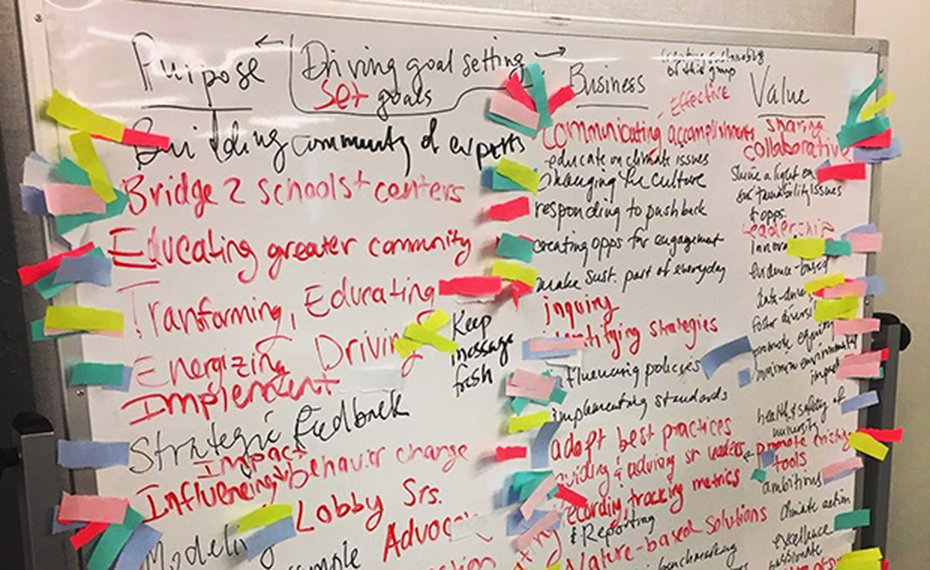 Purpose
Driving goal setting
Set goals
Building community of experts
Bridge 2 schools + centers
Educating greater community
Tranforming, Educating
Energizing Driving
Keep
message
fresh
Implement
Strategic feedback
Impact
Influencing behavior change
Lobby Srs.
Business
of this group
Effective
Communicating accomplishments
educate on climate issues
changing the culture
responding to pushback
creating opps for engagement
make sust. part of everyday
inquiry
identifying strategies
policies
implementing standards
adopt best practices
& advising sr leaders
recording, tracking metrics
& Reporting
Nature-based solutions
benchmarking
Value
sharing
collaborative
Shine a light on
sustainability issues
& opps.
leadership
evidence-based
foster
promote equity
minimize environmental
health & safety of
promote existing
tools
ambitious
climate action
excellence